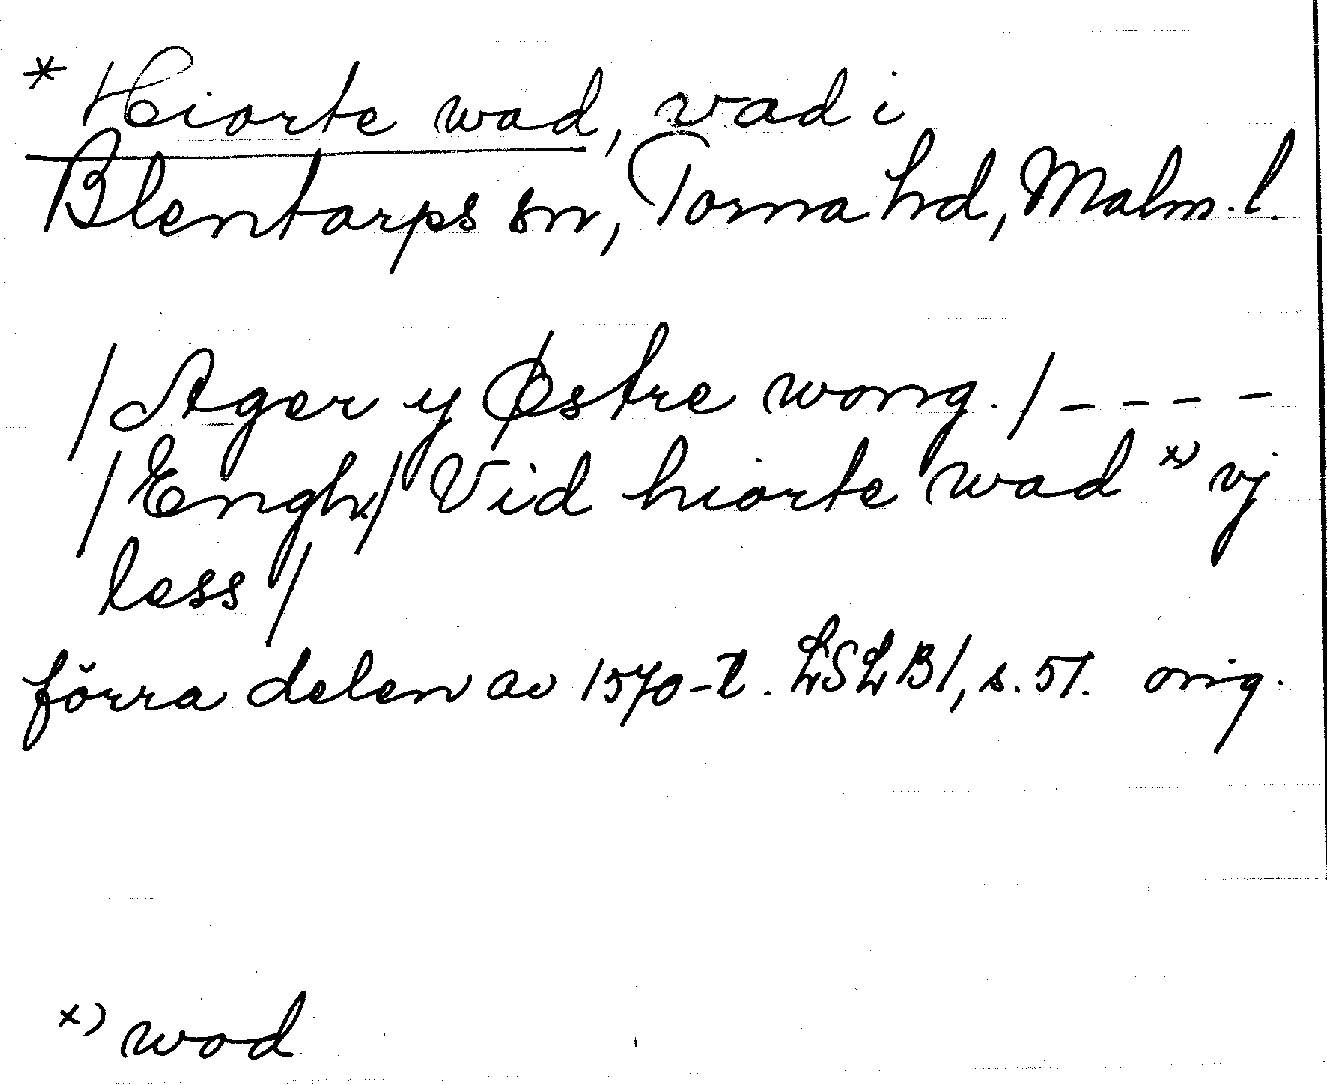 * Hiorte wad, vad i
Blentarps sn, Torna hd, Malm. l.
/Ager y Østre wong./ - - - -
/Engh/ Vid hiorte wad x) vj
less/
förra delen av 1570-t. LSLB1, s. 51. orig.
x) wod